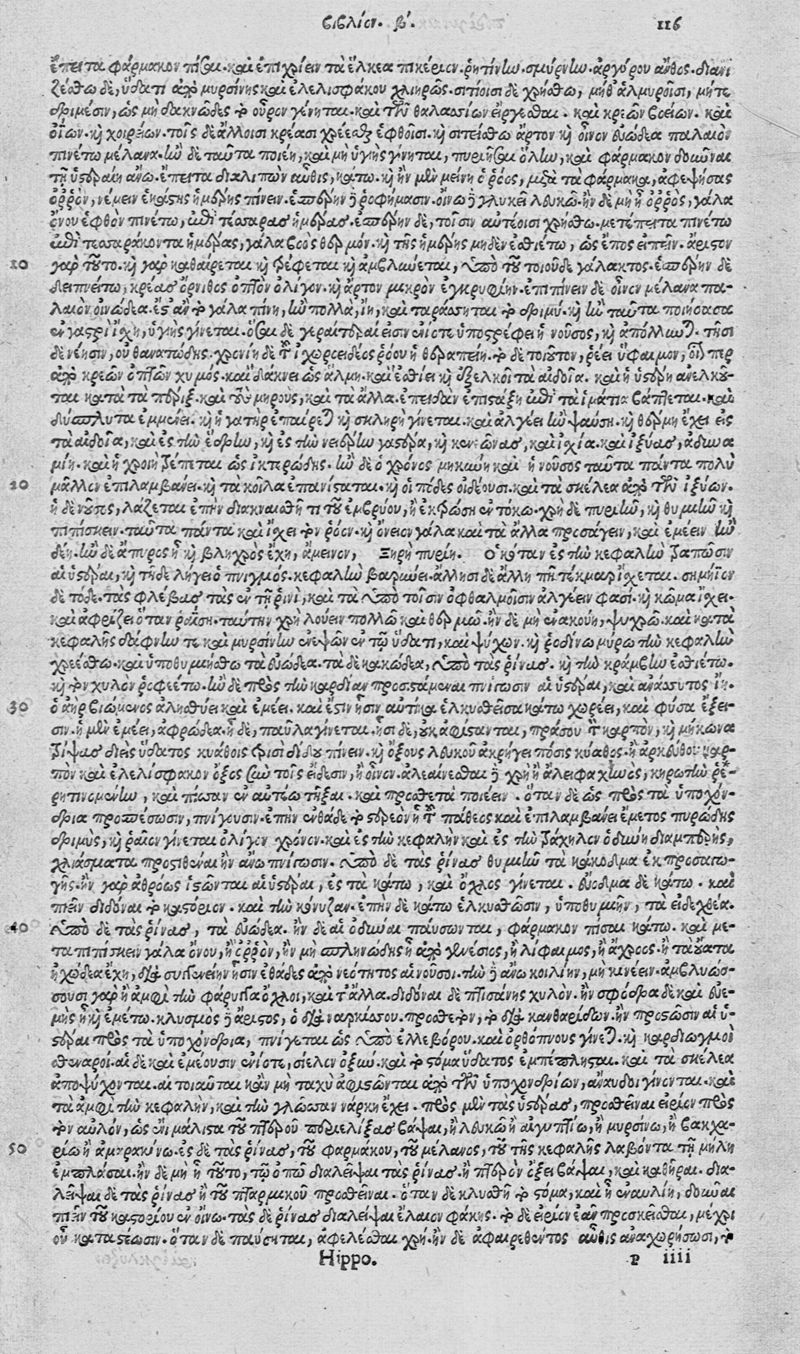 βιβλίον. β΄. 116
ἔπειτα φάρμακον πῖσαι. καὶ ἐπιχρίειν τὰ ἕλκεα πικέριον. ῥητίνην. σμύρνην. ἀργύρου ἄνθος. διανι
ζέσθω δὲ, ὕδατι ἀπὸ μυρσίνης καὶ ἐλελισφάκου χλιηρῷ. σιτίοισι δὲ χρήσθω, μήθ' ἁλμυροῖσι, μήτε
δριμέσιν, ὡς μὴ δακνῶδες τὸ οὖρον γένηται. καὶ τῶν θαλασσίων εἴργεσθαι. καὶ κρεῶν βοείων. καὶ
οἴων. καὶ χοιρείων. τοῖς δὲ ἄλλοισι κρέασι χρέεσθαι ἑφθοῖσι. καὶ σιτείσθω ἄρτον καὶ οἶνον εὐώδεα παλαιὸν
πινέτω μέλανα. ἢν δὲ ταῦτα ποιέῃ, καὶ μὴ ὑγιὴς γίνηται, πυριῆσαι ὅλην, καὶ φάρμακον δοῦναι
τῇ ὑστεραίῃ ἄνω. ἔπειτα διαλιπὼν αὖθις, κάτω. καὶ ἢν μὲν μείνῃ ὁ ῥόος, μετὰ τὰ φάρμακα, ἀφεψήσας
ὀρρὸν, νέμειν ἑκάστης ἡμέρης πίνειν. ἑσπέρην δὲ ῥοφήμασιν. οἴνῳ δὲ γλυκεῖ λευκῷ. ἢν δὲ μὴ ᾖ ὀρρὸς, γάλα
ὄνου ἑφθὸν πινέτω, ἐπὶ τέσσαρας ἡμέρας. ἑσπέρην δὲ, τοῖσιν αὐτέοισι χρήσθω. μετέπειτα πινέτω
ἐπὶ τεσσαράκοντα ἡμέρας, γάλα βοὸς θερμόν. καὶ τῆς ἡμέρης μηδὲν ἐσθιέτω, ὡς ἔπος εἰπεῖν. ἄριστον
10 γὰρ τοῦτο. καὶ γὰρ καθαίρεται καὶ τρέφεται καὶ ἀμβλώνεται, ὑπὸ τοῦ τοιοῦδε γάλακτος. ἑσπέρην δὲ
δειπνείτω, κρέας ὄρνιθος ὀπτὸν ὀλίγον. καὶ ἄρτον μικρὸν ἐγκρυφίην. ἐπιπίνειν δὲ οἶνον μέλανα πα-
λαιὸν οἰνώδεα. ἐς ἂν τὸ γάλα πίνῃ, ἢν πολλὰ, ἴῃ, καὶ ταράσσηται τὸ δριμύ. καὶ ἢν ταῦτα ποιήσασα
ἐν γαστρὶ ἴσχῃ, ὑγιὴς γίνεται. ὅσαι δὲ γεραίτεραι εἰσὶν ἐνίοτε ὑποστρέφει ἡ νοῦσος, καὶ ἀπόλλυται. τῇσι
δὲ νέῃσιν, οὐ θανατώδης. χρονίη δὲ. τοῦ ἰχωροειδέος ῥόου ἡ θεραπείη. τὸ δὲ τοιοῦτον, ῥέει ὕφαιμον, οἷόν περ
ἀπὸ κρεῶν ὀπτῶν χυμός. καὶ δάκνει ὡς ἅλμη. καὶ ἐσθίει καὶ ἐξελκοῖ τὰ αἰδοῖα. καὶ ἡ ὑστέρη ἀνελκοῦ-
ται κατὰ τὰ πέριξ. καὶ τοὺς μηροὺς, καὶ τὰ ἄλλα. ἐπειδὰν ἐπιστάξῃ ἐπὶ τὰ ἱμάτια βάπτεται. καὶ
δύσπλυτα ἐμμένει. καὶ ἡ γαστὴρ ἐπαίρεται καὶ σκληρὴ γίνεται. καὶ ἀλγέει ἢν ψαύσῃ. καὶ θέρμη ἔχει εἰς
τὰ αἰδοῖα, καὶ ἐς τὴν ἕδρην, καὶ ἐς τὴν νείαιρην γαστέρα, καὶ κενεῶνας, καὶ ἰσχία. καὶ ἰξύας, ὀδύνη δει
μίη. καὶ ἡ χροιὴ τρέπεται ὡς ἰκτερώδης. ἢν δὲ ὁ χρόνος μηκύνῃ καὶ ἡ νοῦσος ταῦτα πάντα πολὺ
20 μᾶλλον ἐπιλαμβάνει. καὶ τὰ κοῖλα ἐπανίσταται. καὶ οἱ πόδες οἰδέουσι. καὶ τὰ σκέλεα ἀπὸ τῶν ἰξύων.
ἡ δὲ νοῦσος, λάζεται ἐπὴν διακναισθῇ τι τοῦ ἐμβρύου, ἢ ἐκφύσῃ ἐν τόκῳ. χρὴ δὲ πυριῆν, καὶ θυμιῆν καὶ
πιπίσκειν. ταῦτα πάντα καὶ ἴσχει τὸν ῥόον. καὶ ὄνειον γάλα καὶ τὰ ἄλλα προσάγειν, καὶ ἐμέειν ἢν
δέῃ. ἢν δὲ ἄπυρος ᾖ καὶ βληχρὸς ἔχῃ, ἄμεινον, Ξηρῇ πυρίῃ. Ὁκόταν ἐς τὴν κεφαλὴν τραπῶσιν
αἱ ὑστέραι, καὶ τῇδε λήγει ὁ πνιγμὸς. κεφαλὴν βαρύνει. ἄλλῃσι δὲ ἄλλῃ πῃ τεκμαίρεται. σημήϊον
δὲ τόδε. τὰς φλέβας τὰς ἐν τῇ ῥινὶ, καὶ τὰ ὑπὸ τοῖσιν ὀφθαλμοῖσιν ἀλγέειν φασί. καὶ κῶμα ἴσχει.
καὶ ἀφρίζει ὅταν ῥαΐσῃ. ταύτην χρὴ λούειν πολλῷ καὶ θερμῷ. ἢν δὲ μὴ ἐνακούῃ, ψυχρῷ. καὶ κατὰ
κεφαλῆς δάφνην τε καὶ μυρσίνην ἐνεψῶν ἐν τῷ ὕδατι, καὶ ψύχων. καὶ ῥοδίνῳ μύρῳ τὴν κεφαλὴν
χριέσθω. καὶ ὑποθυμιήσθω τὰ εὐώδεα. τὰ δὲ κακώδεα, ὑπὸ τὰς ῥῖνας. καὶ τὴν κράμβην ἐσθιέτω.
καὶ τὸν χυλὸν ῥοφείτω. ἢν δὲ πρὸς τὴν καρδίην προσιστάμεναι πνίγωσιν αἱ ὑστέραι, καὶ ἀνάσσυτος ἴῃ.
30 ὁ ἀὴρ βιώμενος ἀλησθύει καὶ ἐμέει. καὶ ἔστιν ᾗσιν αὐτίκα ἑλκυσθεῖσα κάτω χωρέει, καὶ φύσα ἔξει-
σιν. ἢ μὲν ἐμέει, ἀφρώδεα. ἡ δὲ, παῦλα γίνεται. ᾗσι δὲ, οὐκ ἀφίσανται, πράσου τὸν καρπὸν, καὶ μήκωνα
τρίψας διεὶς ὕδατος κυάθοις τρισὶ δίδου πίνειν. καὶ ὄξους λευκοῦ ἀκρήγει πόσις κύαθος. ἢ ἀρκεύθου καρ-
πὸν καὶ ἐλελίσφακον ὄξος ξὺν τοῖς εἴδεσιν, ἢ οἶνον. ἀλεαίνεσθαι δὲ χρὴ ἢ ἀλείφα χηνὸς, κηρωτὴν ῥε-
ρητινωμένην, καὶ πίσσαν ἐν αὐτέῳ τῆξαι. καὶ προσθετὰ ποιέειν. ὅταν δὲ ὡς πρὸς τὰ ὑποχόν-
δρια προσπέσωσιν, πνίγουσιν. ἐπὴν ἐνθάδε τὸ ὑστερέον ᾖ τὸ πάθεος καὶ ἐπιλαμβάνει ἔμετος πυρώδης
δριμὺς, καὶ ῥάων γίνεται ὀλίγον χρόνον. καὶ ἐς τὴν κεφαλὴν καὶ ἐς τὸν τράχηλον ὀδύνη διαμπερὴς,
χλιάσματα προστιθέναι ἢν ἄνω πνίγωσιν. ὑπὸ δὲ τὰς ῥῖνας θυμιῆν τὰ κάκοδμα ἐκ προσαγω-
γῆς. ἢν γὰρ ἀθρόως ἱστῶνται αἱ ὑστέραι, ἐς τὰ κάτω, καὶ ὄχλος γίνεται. εὔοδμα δὲ κάτω. καὶ
πιεῖν διδόναι τὸ καστόριον. καὶ τὴν κόνυζαν. ἐπὴν δὲ κάτω ἑλκυσθῶσιν, ὑποθυμιῆν, τὰ εἰδεχθέα.
40 ὑπὸ δὲ τὰς ῥῖνας, τὰ εὐώδεα. ἢν δὲ αἱ ὀδύναι παύσωνται, φάρμακον πῖσαι κάτω. καὶ με-
τα πιπίσκειν γάλα ὄνου, ἢ ὀρρὸν, ἢν μὴ σπληνώδης ᾖ ἀπὸ γενέσιος, ἢ λίφαιμος, ἢ ἄχροος. ἢ τὰ οὔατα
ἠχώδεα ἔχῃ, διὰ συγγενείην ᾗσιν ἐθάδες ἀπὸ νεότητος αἱ νοῦσοι. τὴν δὲ ἄνω κοιλίην, μὴ κινέειν. ἀμβλυώσ-
σουσι γὰρ ἢ ἀμφὶ τὴν φάρυγγα ὄχλοι, καὶ τἄλλα. διδόναι δὲ πτισάνης χυλόν. ἢν σφόδρα δὲ καὶ εὐε-
μὴς ᾖ καὶ ἐμέτω. κλυσμὸς δὲ ἄριστος, ὁ διὰ ναρκίσσου. πρόσθετον, τὸ διὰ κανθαρίδων. ἢν προσῶσιν αἱ ὑ-
στέραι πρὸς τὰ ὑποχόνδρια, πνίγεται ὡς ὑπὸ ἐλλεβόρου. καὶ ὀρθόπνους γίνεται. καὶ καρδιωγμοὶ
σθεναροί. αἱ δὲ καὶ ἐμέουσιν ἐνίοτε, σίελον ὀξύν. καὶ τὸ στόμα ὕδατος ἐμπίπληται. καὶ τὰ σκέλεα
ἀποψύχονται. αἱ τοιαῦται κἢν μὴ ταχὺ ἀφιστῶνται ἀπὸ τῶν ὑποχονδρίων, ἄναυδοι γίνονται. καὶ
τὰ ἀμφὶ τὴν κεφαλὴν, καὶ τὴν γλῶσσαν νάρκη ἔχει. πρὸς μὲν τὰς ὑστέρας, προσθεῖναι εἰρίον πρὸς
τὸν αὐλὸν, ὡς ἓν μάλιστα τοῦ πτεροῦ περιελίξας βάψαι, ἢ λευκῷ ἢ αἰγυπτίῳ, ἢ μυρσίνῳ, ἢ βακχα-
50 ρίῳ ἢ ἀμαρακίνῳ. ἐς δὲ τὰς ῥῖνας, τοῦ φαρμάκου, τοῦ μέλανος, τοῦ τῆς κεφαλῆς λαβόντα τῇ μήλῃ
ἐμπλάσαι. ἢν δὲ μὴ ᾖ τοῦτο, τῷ ὀπῷ διαλεῖψαι τὰς ῥῖνας. ἢ πτερὸν ὄξει βάψαι, καὶ καθῆραι. δια-
λεῖψαι δὲ τὰς ῥῖνας ἢ τοῦ πταρμικοῦ προσθεῖναι. ὅταν δὲ κλυσθῇ τὸ στόμα, καὶ ᾖ ἐναυδίη, δοῦναι
πιεῖν τοῦ καστορίου ἐν οἴνῳ. τὰς δὲ ῥῖνας διαλεῖψαι ἔλαιον φώκης. τὸ δὲ εἰρίον ἐᾶν προσκεῖσθαι, μέχρι
οὗ καταστέωσιν. ὅταν δὲ παύσηται, ἀφελέσθαι χρή. ἢν δὲ ἀφαιρεθέντος αὖθις ἀναχωρήσωσι, τὸ
Hippo. P iiii